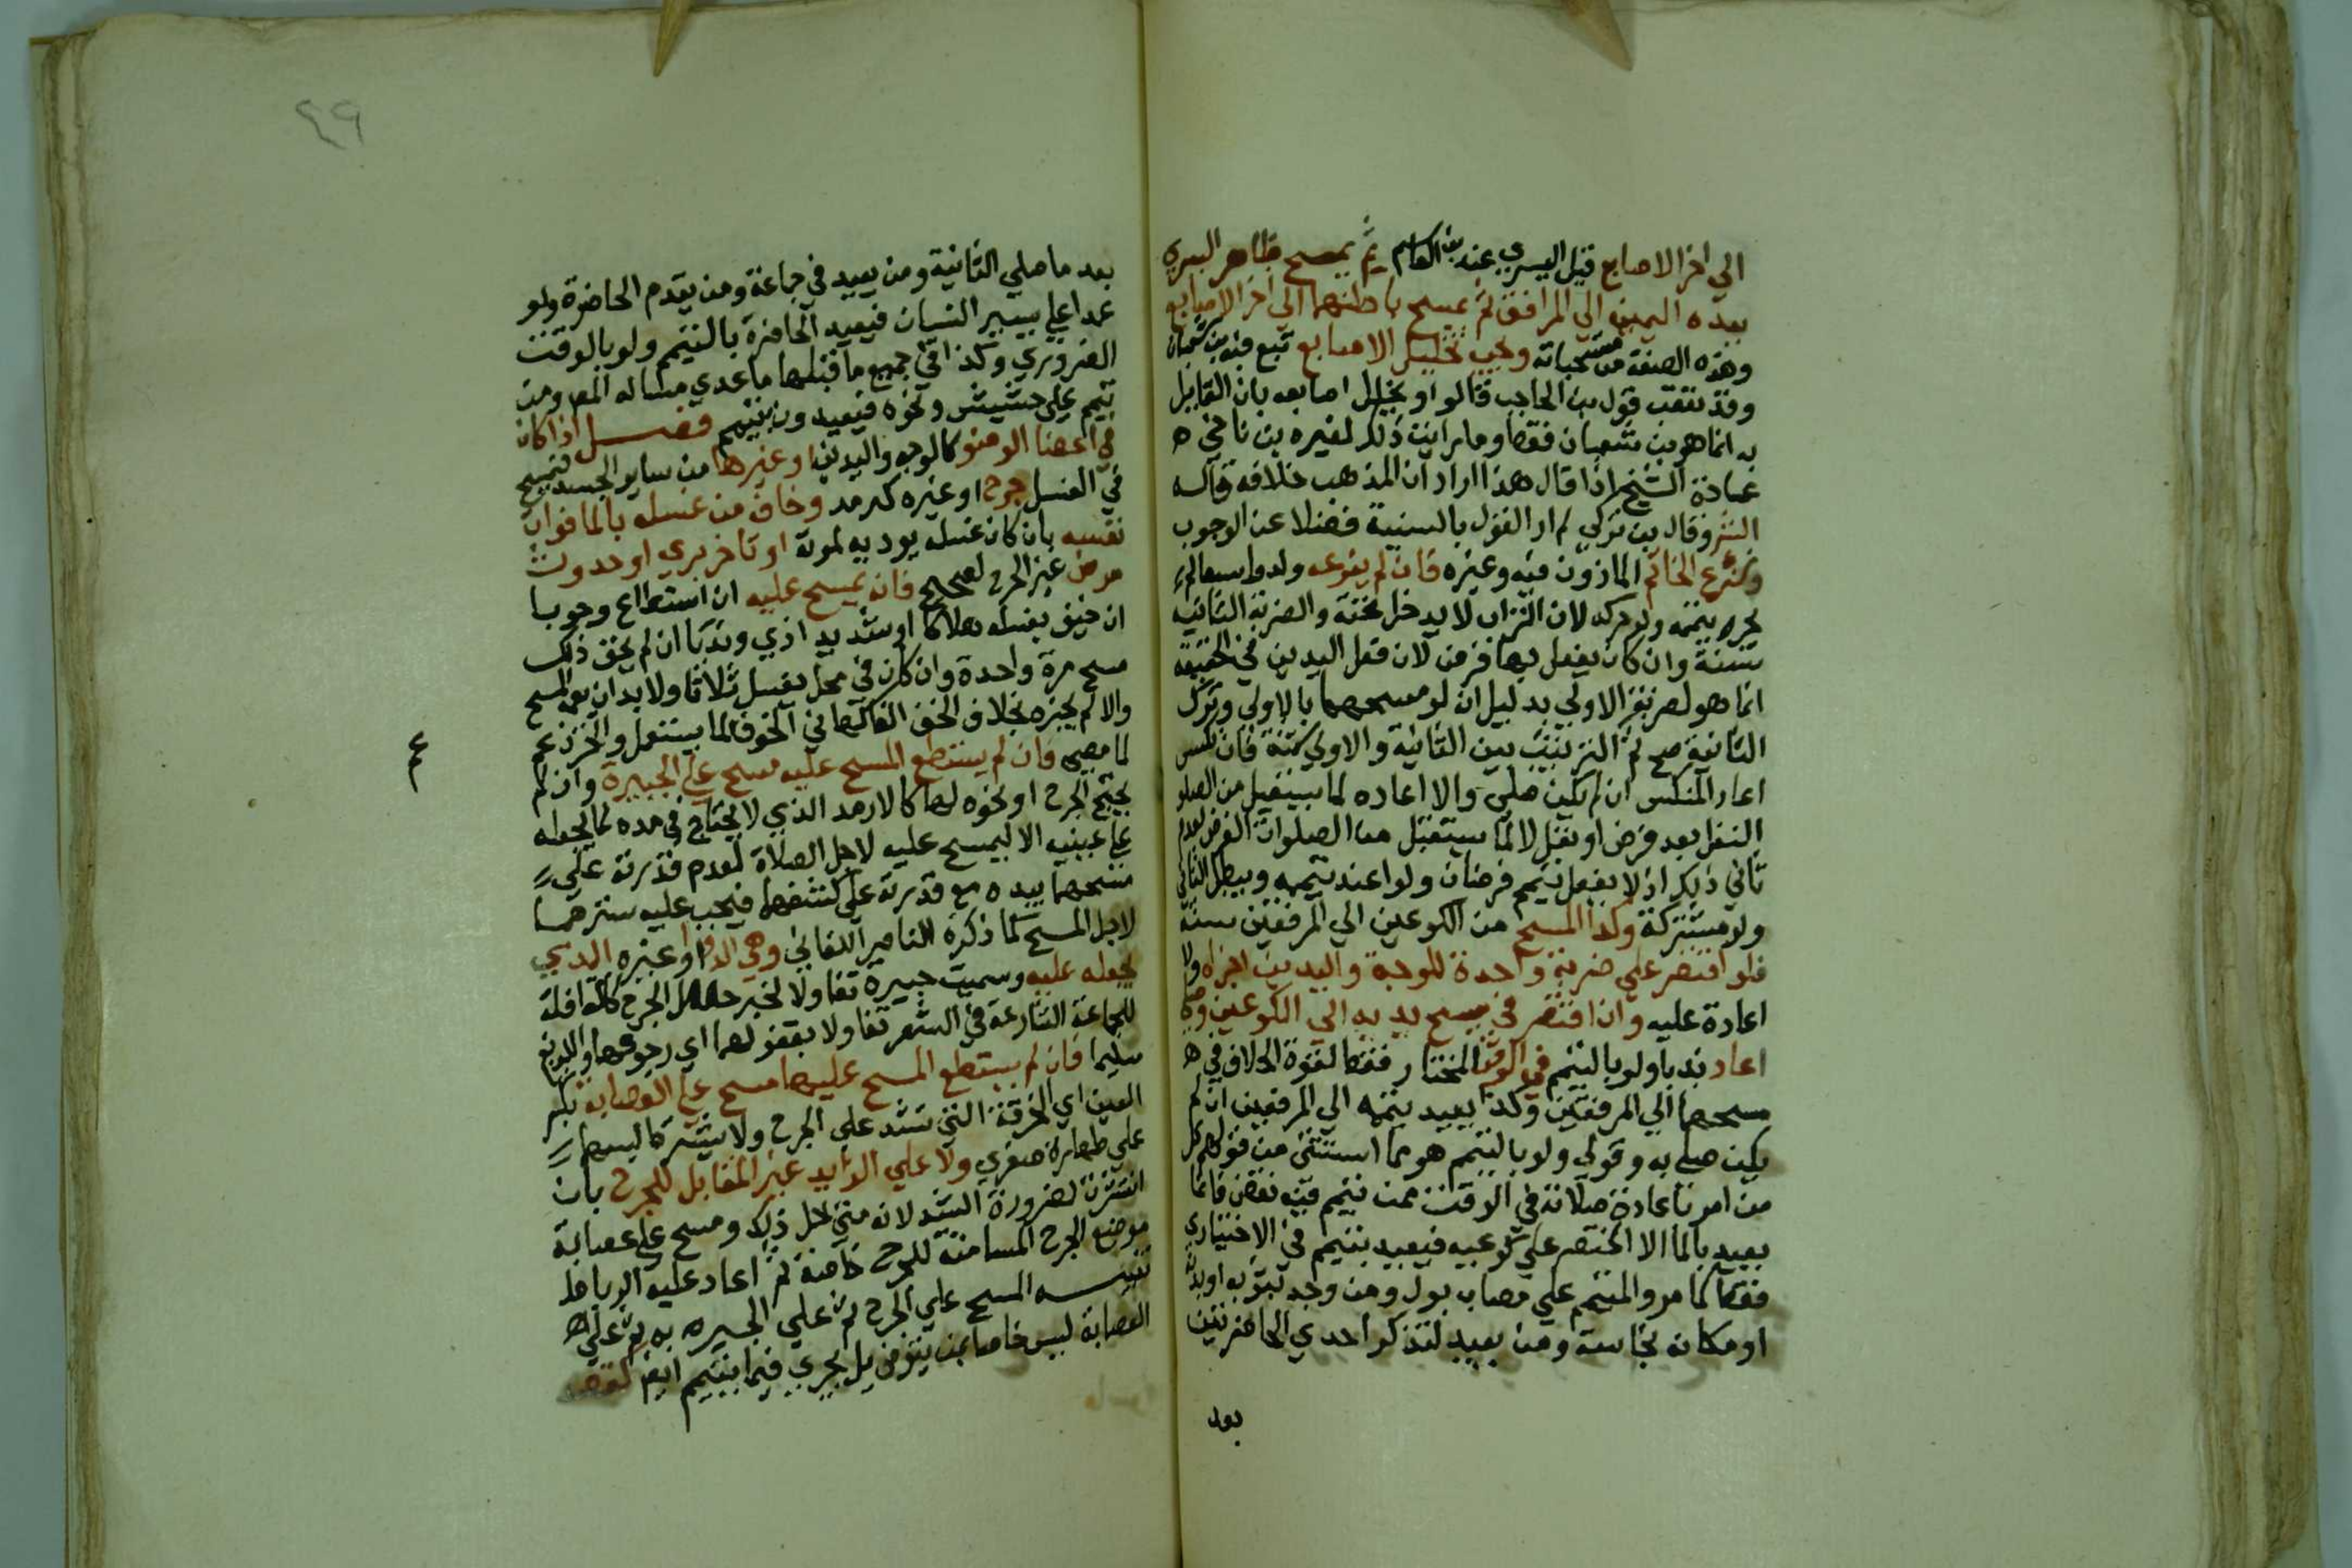 الي اخر الاصابع قبل اليسري عند بن القاسم ثم يمسح ظاهر اليسري
بيده اليمين الي المرافق ثم يمسح باطنهما الي اخر الاصابع
وهذه الصفة من مستحباته ويجب تخليل الاصابع تبع فيه بن شعبان
وقد تعقب قول بن الحاجب قالوا ويخلل اصابعه بان القايل
به انما هو بن شعبان فقط وما رايت ذلك لغيره بن ناجي ه
عادة الشيخ اذا قال هذا اراد ان المذهب خلافه قاله
الشر وقال بن تركي لم ار القول بالسنية فضلا عن الوجوب
ونزع الخاتم الماذون فيه وغيره فان لم ينزعه ولو واسعا لم
يجزه تيممه ولو حركه لان التراب لا يدخل تحته والضربة الثانية
سنة وان كان يفعل بها فرض لان فعل اليدين في الحقيقة
انما هو لضربة الاولي بدليل انه لو مسحهما بالاولي وترك
الثانية صح ثم الترتيب بين الثانية والاولي سنة فان نكس
اعاد المنكس ان لم يكن صلي والا اعاده لما يستقبل من الصلو
النفل بعد فرض او نفل لا لما يستقبل من الصلوات الفرض لعدم
تاتي ذلك اذ لا يفعل بتيمم فرضان ولو اعند تيممه ويبطل الثاني
ولو مشتركة وكذا المسح من الكوعين الي المرفقين سنة
فلو اقتصر علي ضربة واحدة للوجه واليدين اجزاه ولا
اعادة عليه وان اقتصر في مسح يديه الي الكوعين وصلي
اعاد ندبا ولو بالتيمم في الوقت المختار فقط لقوة الخلاف في ه
مسحهما الي المرفقين وكذا يعيد تيممه الي المرفقين ان لم
يكن صلي به وقولي ولو بالتيمم هو مما استثني من قولهم كل
من امر باعادة صلاته في الوقت ممن تيمم فيه نقص فانما
يعيد بالما الا المختصر علي كوعيه فيعيد بتيمم في الاختياري
فقط كما مر والمتيمم علي مصاب بول ومن وجد بثوبه او بدنه
او مكانه نجاسة ومن يعيد لتذكر احدي الحاضرتين
بعد
٤٩
بعد ما صلي الثانية ومن يعيد في جماعة ومن يقدم الحاضرة ولو
عمدا علي يسير النسيان فيعيد الحاضرة بالتيمم ولو بالوقت
الضروري وكذا في جميع ما قبلها ما عدي مسالة المص ومن
تيمم علي حشيش ونحوه فيعيد ون بتيمم فصل اذا كان
في اعضا الوضو كالوجه واليدين او غيرها من ساير الجسد فيمسح
في الغسل جرح او غيره كرمد وخاف من غسله بالما فوات
نفسه بان كان غسله يودي لموته او تاخر بري او حدوث
مرض غير الجرح لصحيح فانه يمسح عليه ان استطاع وجوبا
ان خيف بغسله هلاكا او شديد اذي وندبا ان لم يخف ذلك
مسح مرة واحدة وان كان في محل يغسل ثلاثا ولا بد ان يعم المسح
والا لم يجزه بخلاف الخف الغالبها في الخوف لما يستعمل والخرز عم
لما مضي فان لم يستطع المسح عليه مسح علي الجبيرة وان لم
يحتج الجرح او نحوه لها كالارمد الذي لا يحتاج في رمده لما يجعله
علي عينيه الا ليمسح عليه لاجل الصلاة لعدم قدرته علي
مسحهما بيده مع قدرته علي كشفهما فيجب عليه سترهما
لاجل المسح كما ذكره الناصر اللقاني وهي الدوا او غيره الذي
يجعله عليه وسميت جبيرة تفاولا لخبر الجرح كالقافلة
للجماعة الشارعة في السفر تفاولا بقفولها اي رجوعها واللديغ
سليما فان لم يستطع المسح عليها مسح علي العصابة بكسر
العين اي الخرقة التي تشد علي الجرح ولا يشترط لبسها
علي طهارة صغري ولا علي الزايد غير المقابل للجرح بان
انتشرت لضرورة الشد لانه متي لحل ذلك ومسح علي عصابة
موضع الجرح المسامتة للجرح خاصة ثم اعاد عليه الرباط
تنبيه المسح علي الجرح ثم علي الجبيره به ثم علي ه
العصابة ليس خاصا بمن يتوضي بل يجري فيما يتيمم ايض
عم